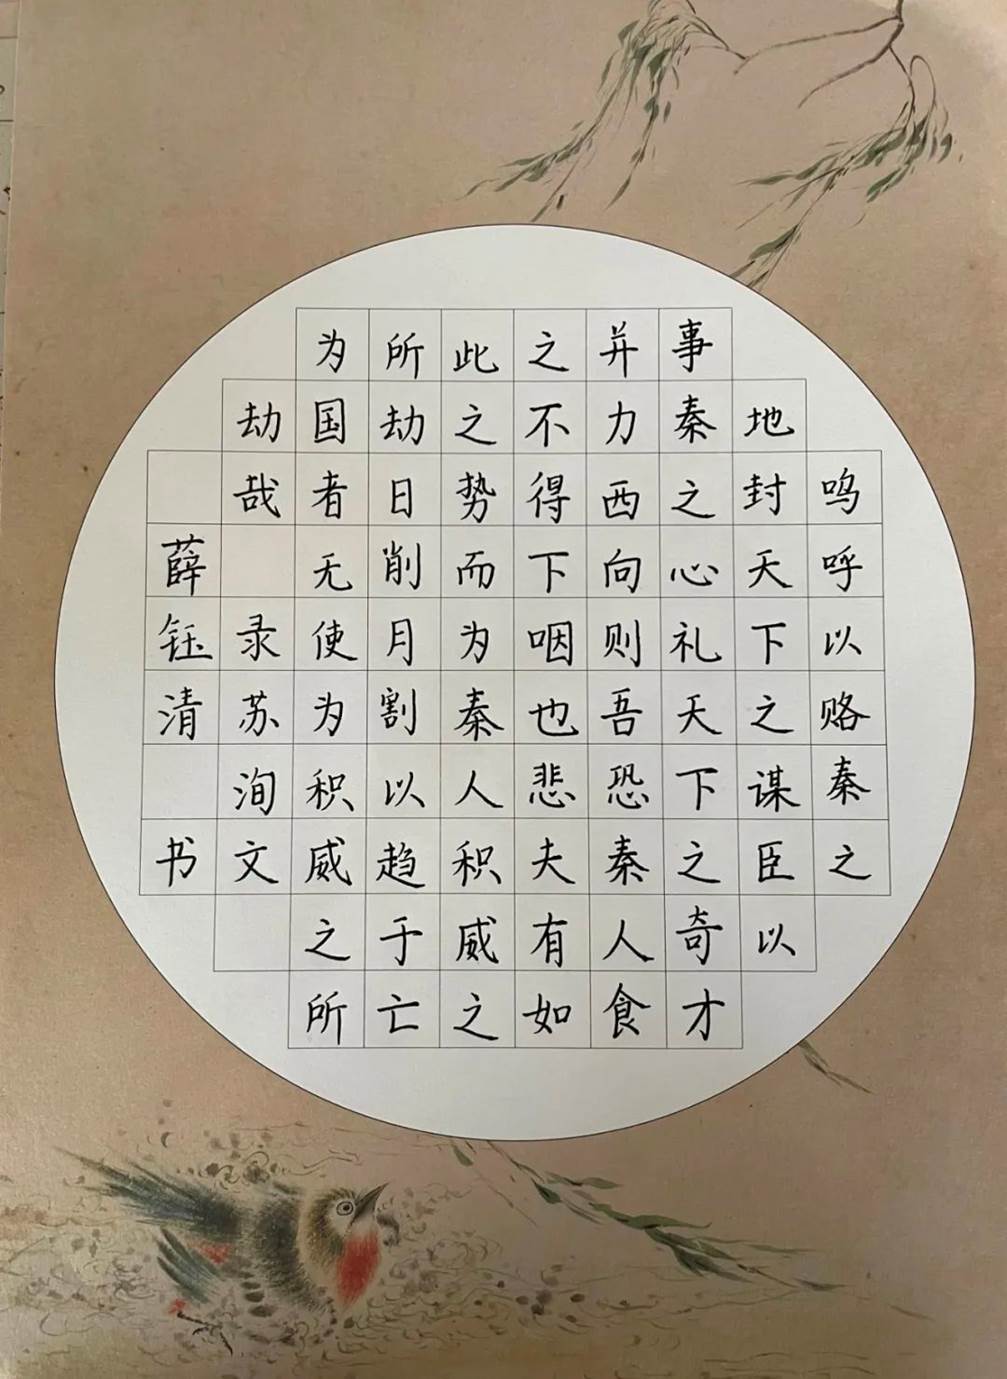 呜呼以赂秦之
地封天下之谋臣以
事秦之心礼天下之奇才
并力西向则吾恐秦人食
之不得下咽也悲夫有如
此之势而为秦人积威之
所劫日削月割以趋于亡
为国者无使为积威之所
劫哉 录苏洵文
薛钰清 书